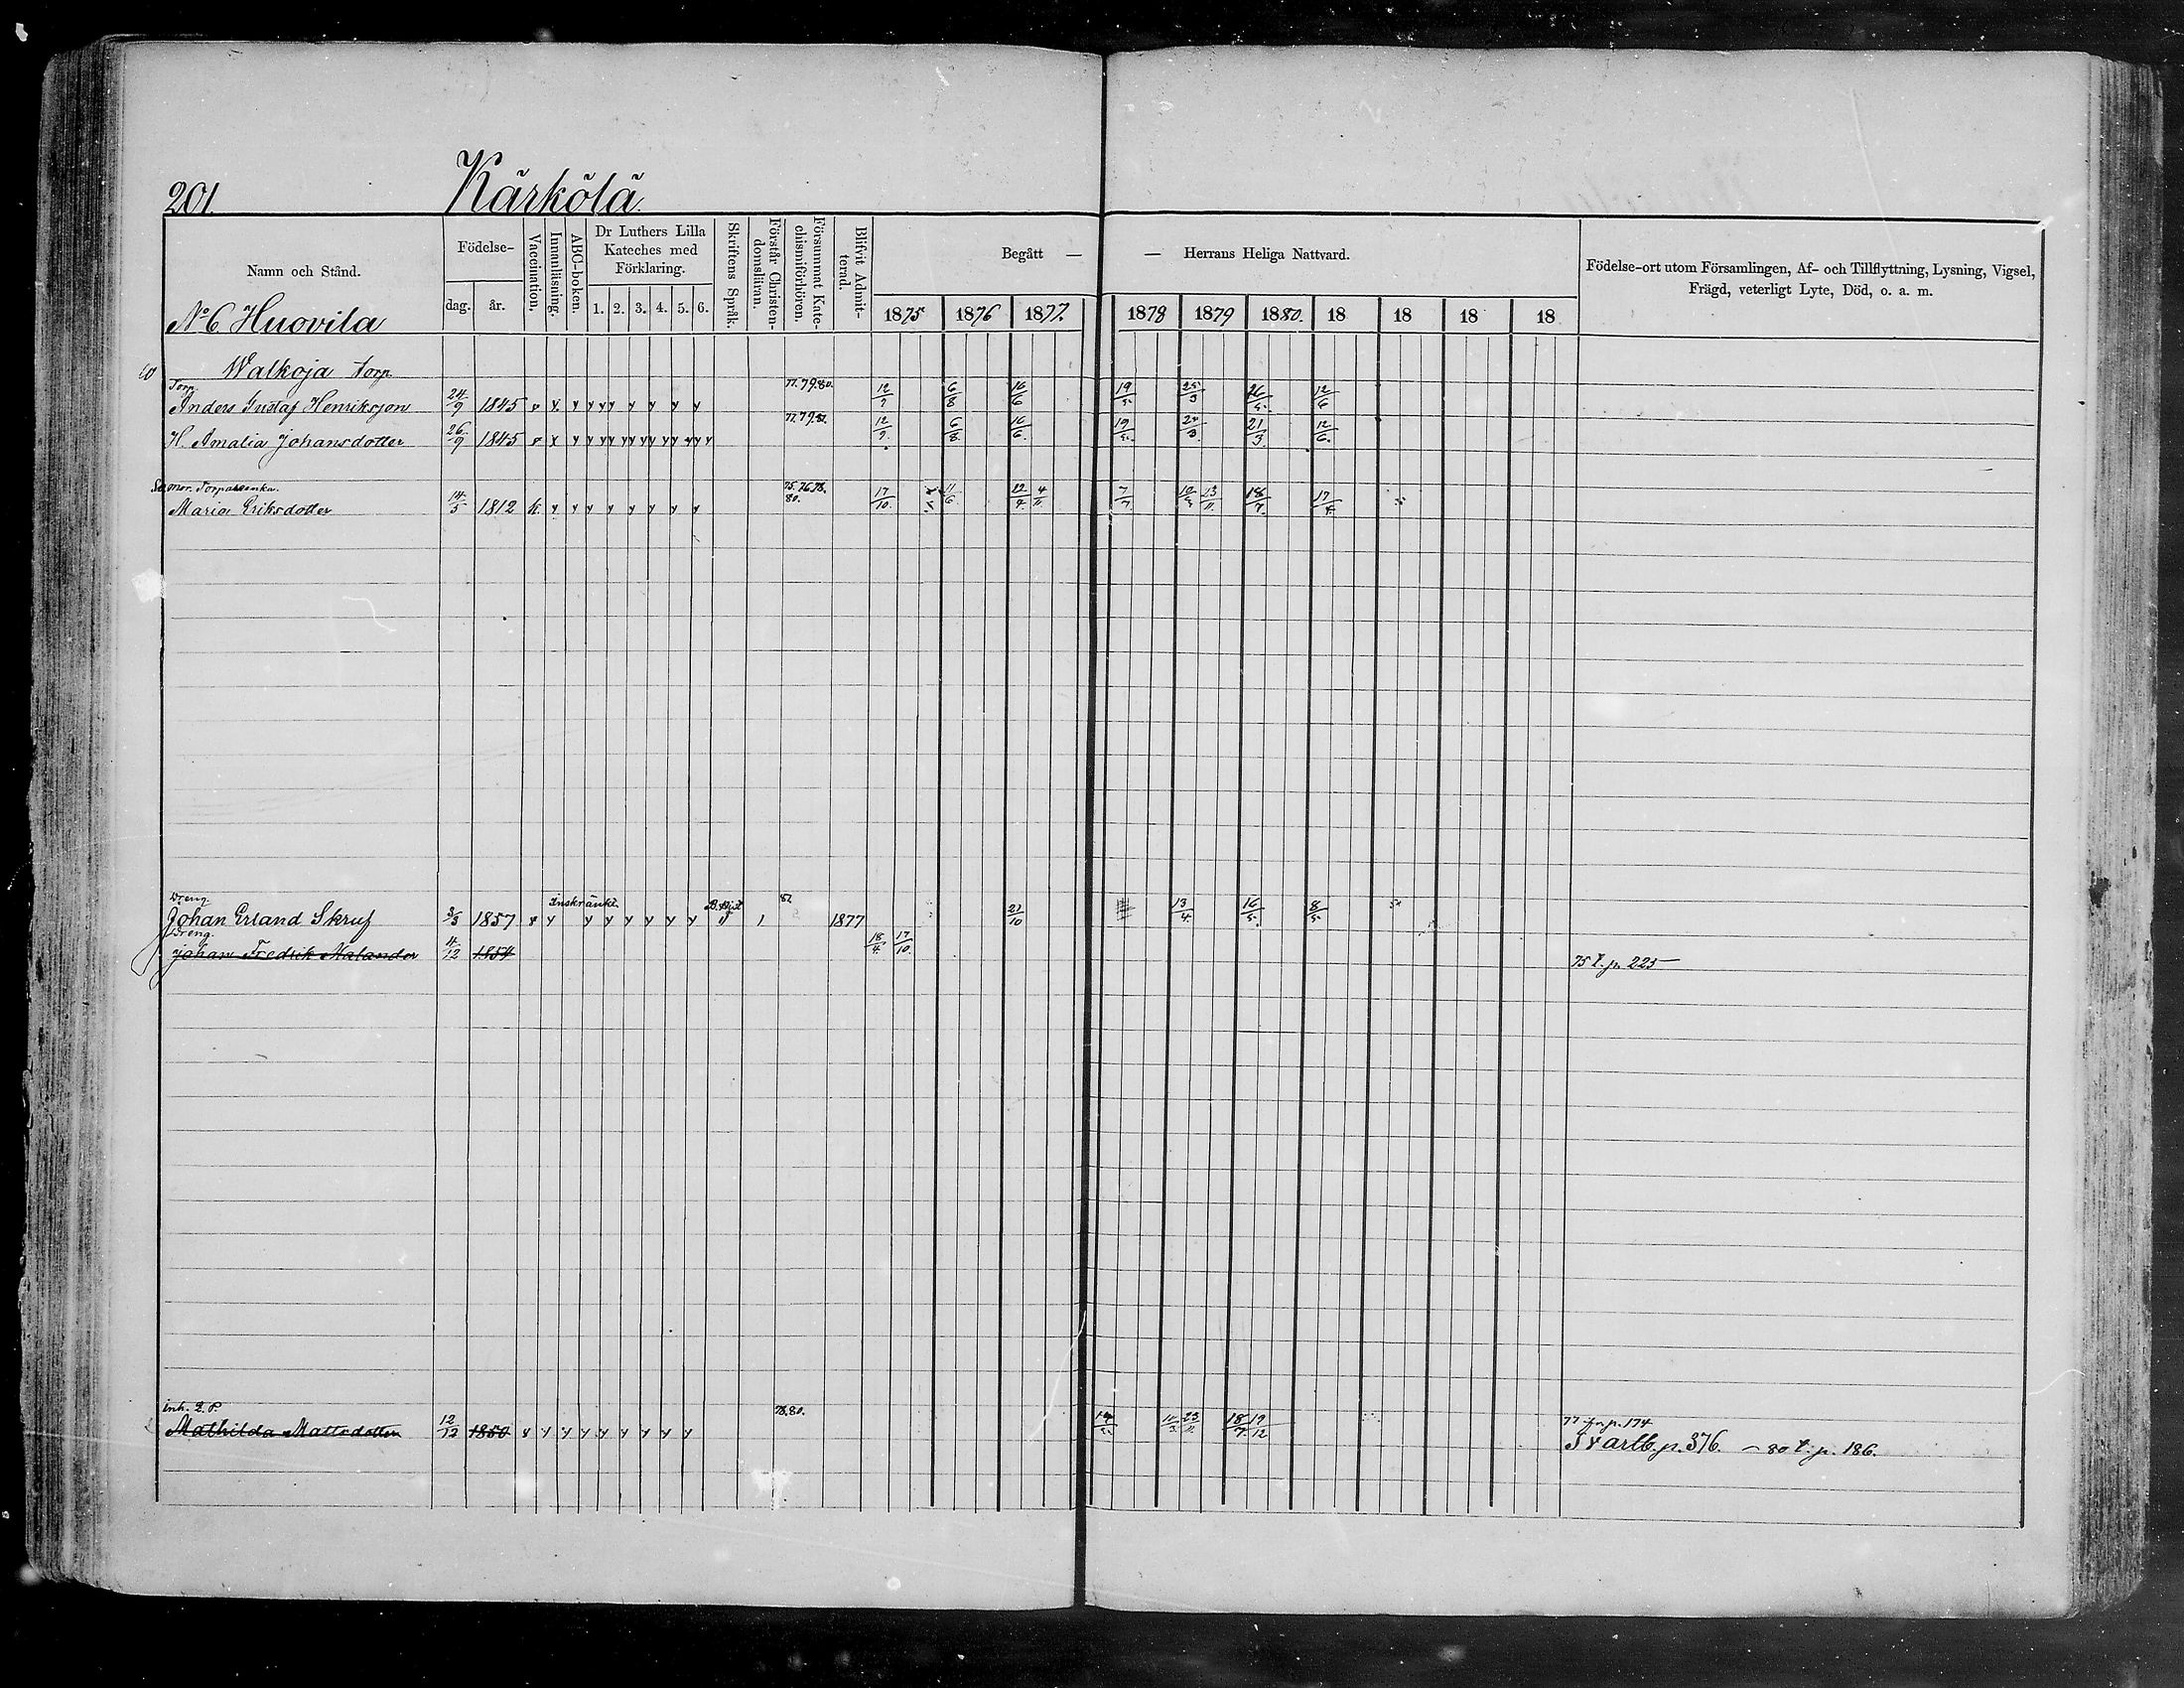 201. Kärkölä.
Namn och Stånd.
Födelse-
dag. år.
Vaccination.
Innanläsning.
ABC-boken.
Dr Luthers Lilla
Kateches med
Förklaring.
1. 2. 3. 4. 5. 6.
Skriftens Språk.
Förstår Christen-
domsläran.
Försummat Kate-
chismiförhören.
Blifvit Admit-
terad.
Begått — — Herrans Heliga Nattvard.
1875 1876 1877. 1878 1879 1880. 18 18 18 18
Födelse-ort utom Församlingen, Af- och Tillflyttning, Lysning, Vigsel,
Frägd, veterligt Lyte, Död, o. a. m.
No 6 Huovila
Walkoja torp
Torp. 77.79.80.
Anders Gustaf Henriksson 24/9 1845 v y y y y y y y y y 12/9 6/8 16/6 19/5 25/3 12/6
H. Amalia Johansdotter 26/9 1845 12/9 6/8 16/6 19/5 21/3 12/6
75.76.78.
80.
Maria Eriksdotter 14/5 1812 k y y y y y y y y 17/10 11/6 22/4 4/11 7/7 23/11 18/7 17/7
Dreng Inskränkt
Johan Erland Skruf 3/3 1857 v y y y y y y y 1 1877 21/10 13/4 16/5 8/5
Dreng.
Johan Fredrik Malander 4/12 1854 18/4 17/10 75 t. p. 223
inh. Q. P. 78.80.
Mathilda Mattsdotter 12/12 1850 v y y y y y y y y 23/11 18/7 19/12 77 fr. p. 174
p. 376. – 80 t. p. 186.